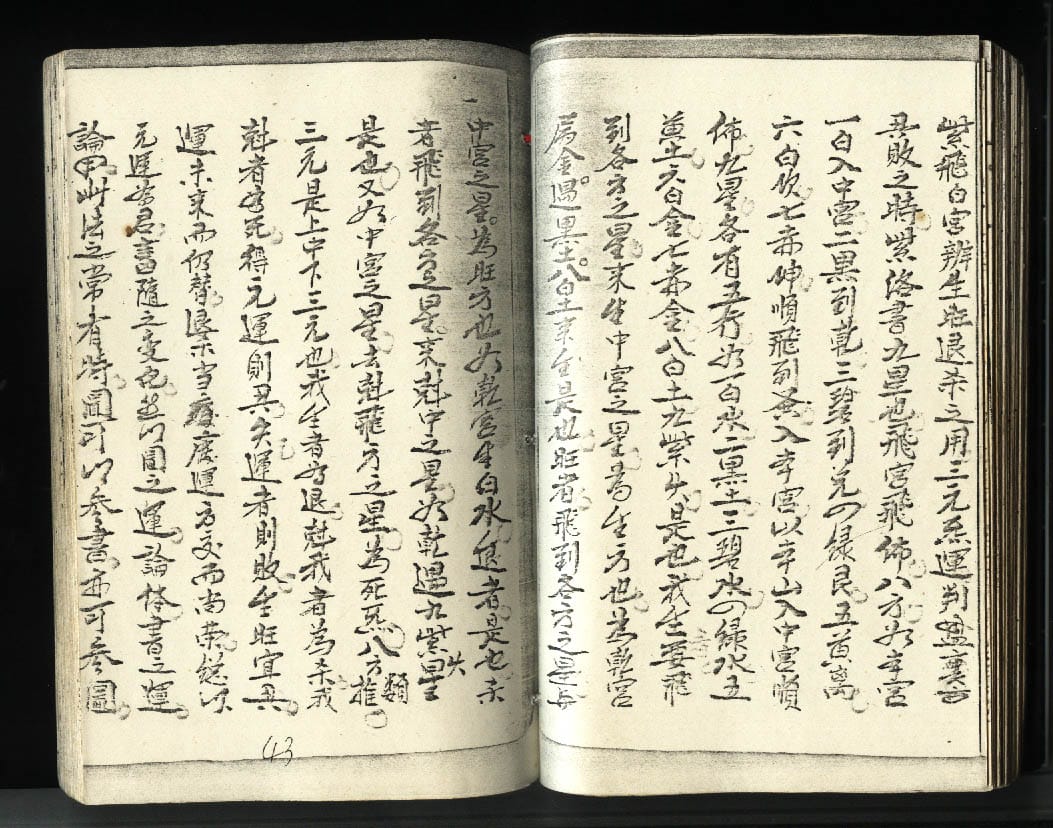 紫飛白宮辨生旺退杀之用三元系運判盛衰
丑敗之時紫洛書九星也飛宮飛佈八方如辛宮
一白入中宮二黒到乾三碧到兌四綠艮五黃离
六白坎七赤坤順飛到巽入辛宮以辛山入中宮順
佈九星各有五行如一白水二黒土三碧水四綠水五
黃土六白金七赤金八白土九紫火是也我生要飛
到各方之星來生中宮之星爲生方也爲乾宮
属金遇黒土八白土來生是也旺者飛到各方之星与
中宮之星為旺方也如乾宮生白水者是也杀
者飛到各宮之星來尅中之星如乾遇九紫星火
是也又如中宮之星去尅飛方之星為死炁八方推類
三元是上中下三元也我生者为退尅我者為杀我
尅者为死得元運則丑失運者則敗生旺宜丑
運未来而仍替退杀当廢運方交而尚荣総以
元運為君書隨之变也此以圖之運論楼書之運
論此法之常有特圖可以参書亦可参圖
43